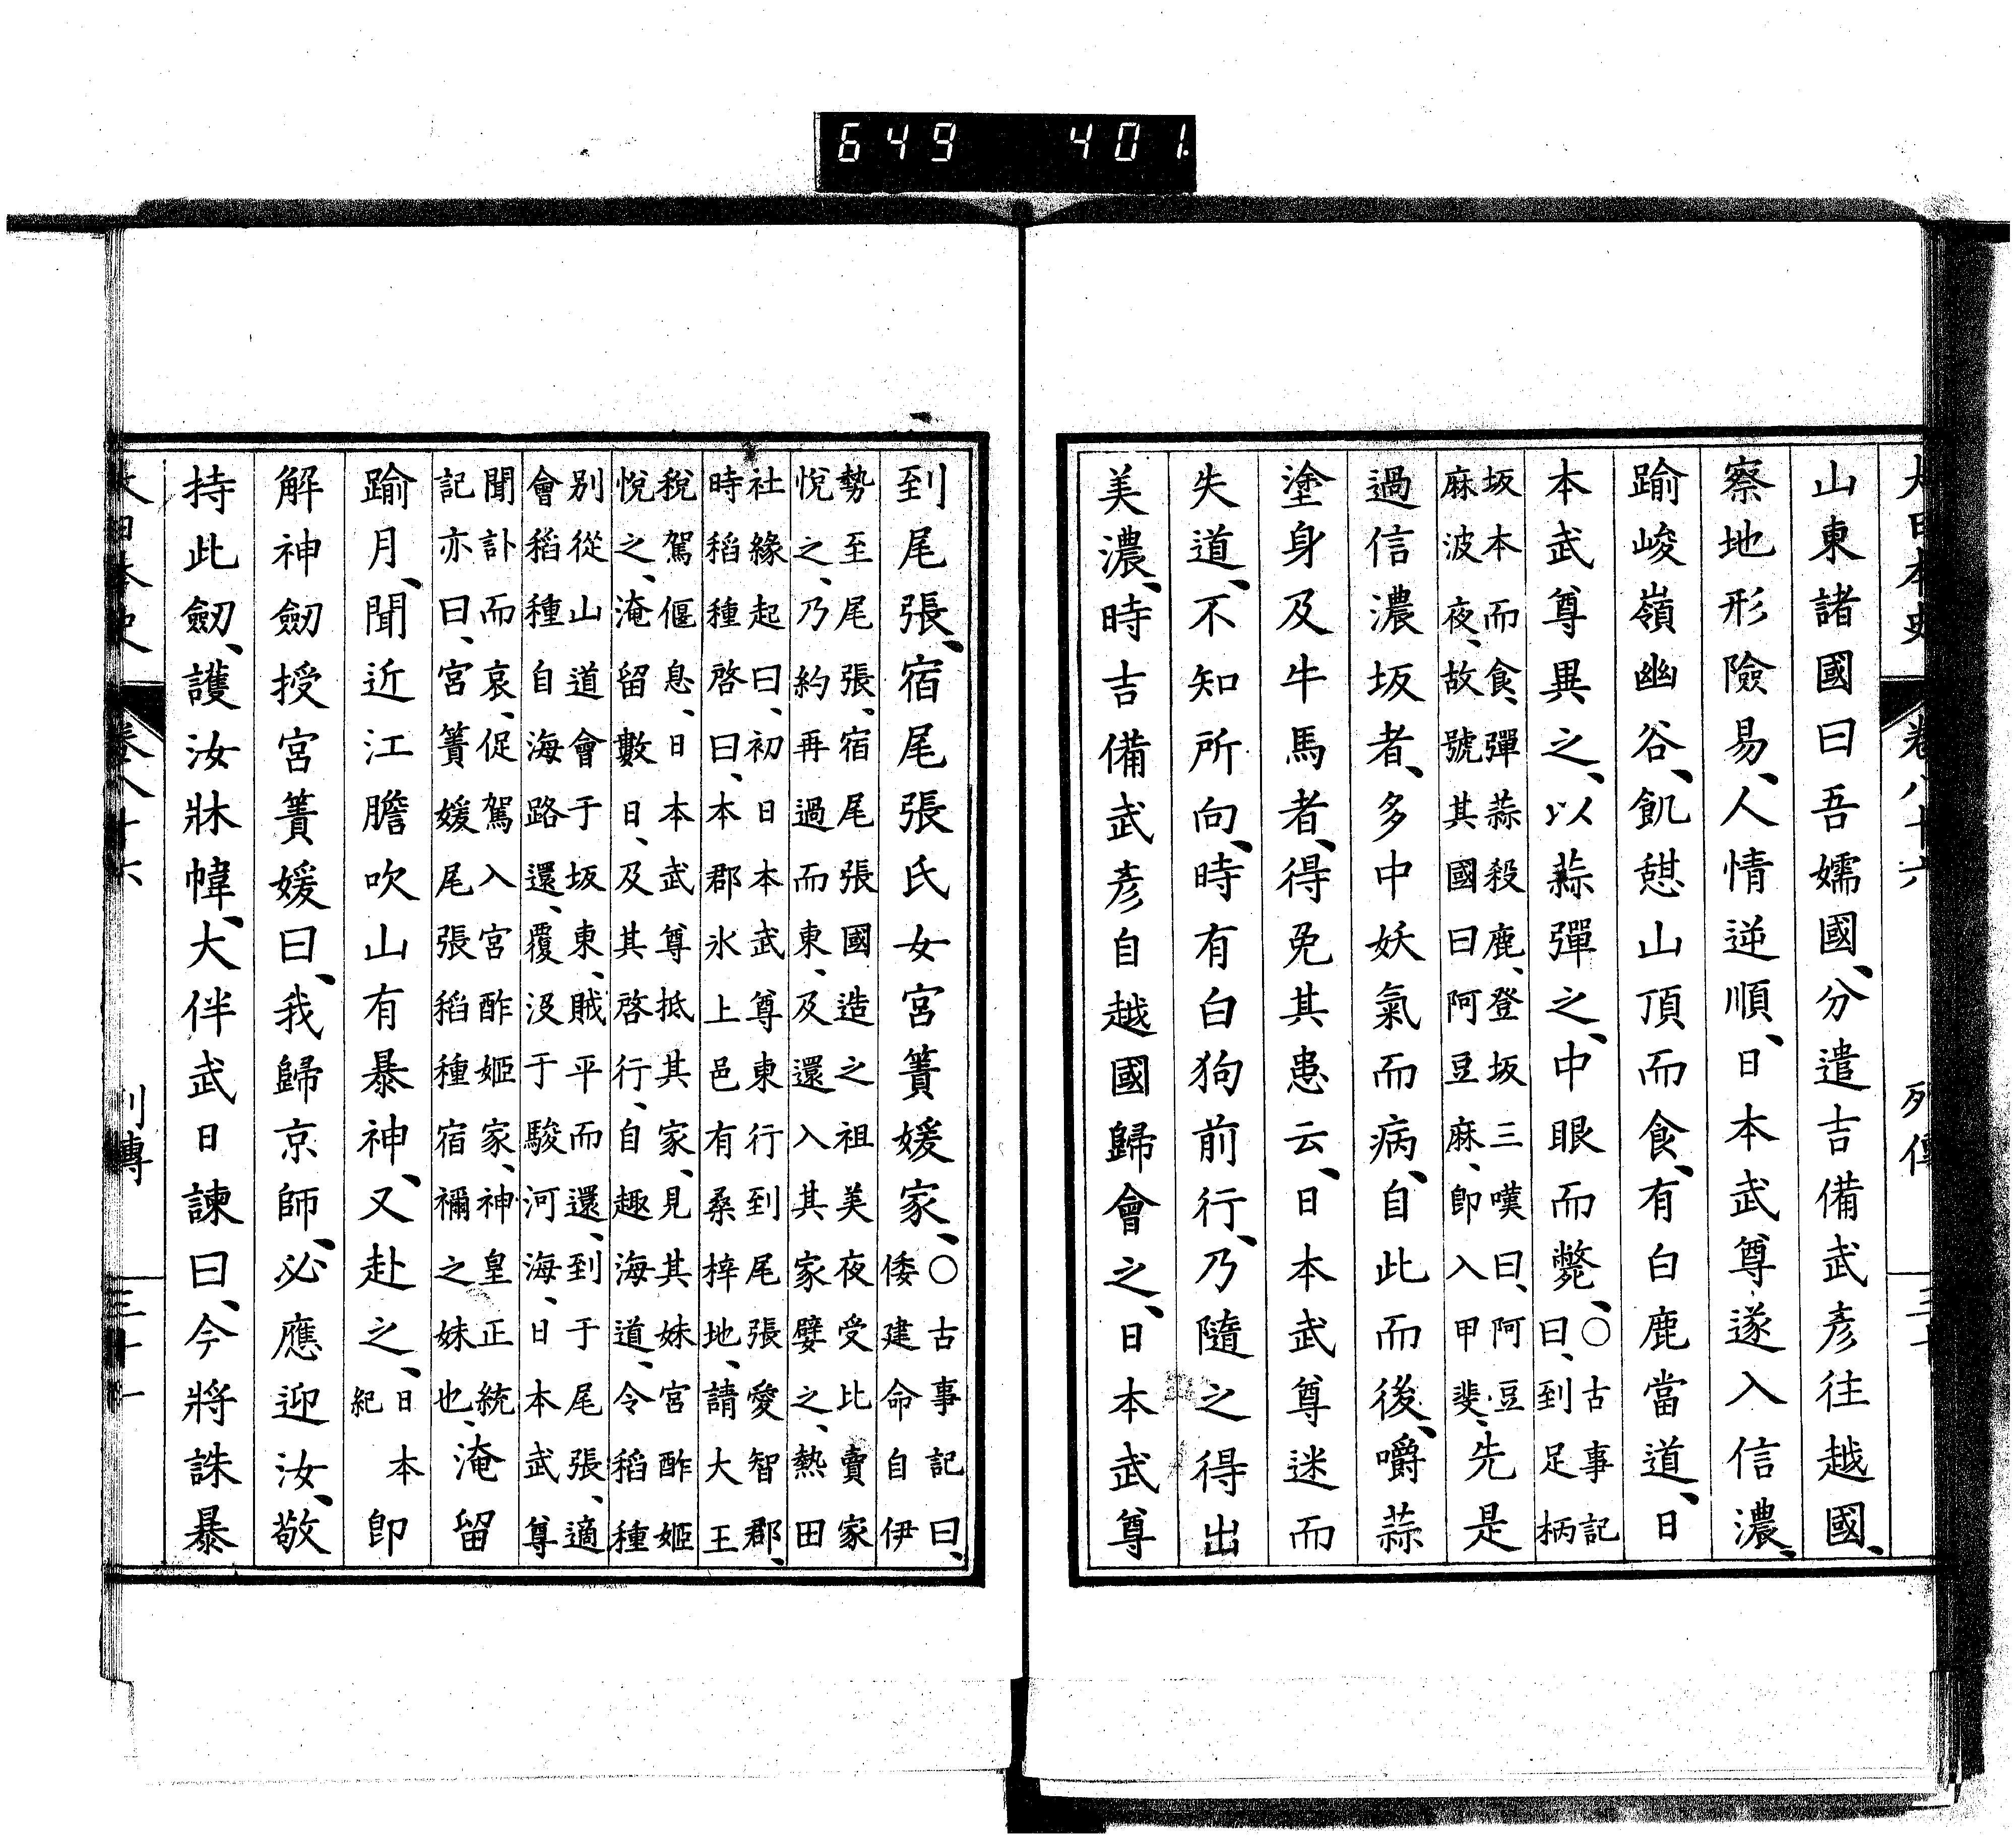 大日本史 卷八十六 列傳 三十
山東諸國曰吾嬬國、分遣吉備武彥往越國、
察地形險易、人情逆順、日本武尊遂入信濃、
踰峻嶺幽谷、飢憇山頂而食、有白鹿當道、日
本武尊異之、以蒜彈之、中眼而斃、〇古事記曰、到足柄
坂本而食、彈蒜殺鹿、登坂三嘆曰、阿豆麻波夜、故號其國曰阿豆麻、卽入甲斐、先是
過信濃坂者、多中妖氣而病、自此而後、嚼蒜
塗身及牛馬者、得免其患云、日本武尊迷而
失道、不知所向、時有白狗前行、乃隨之得出
美濃、時吉備武彥自越國歸會之、日本武尊
到尾張、宿尾張氏女宮簀媛家、〇古事記曰、倭建命自伊
勢至尾張、宿尾張國造之祖美夜受比賣家
悅之、乃約再過而東、及還入其家嬖之、熱田
社緣起曰、初日本武尊東行到尾張愛智郡、
時稻種啓曰、本郡氷上邑有桑梓地、請大王
稅駕偃息、日本武尊抵其家、見其妹宮酢姬
悅之、淹留數日、及其啓行、自趣海道、令稻種
別從山道會于坂東、賊平而還、到于尾張、適
會稻種自海路還、覆沒于駿河海、日本武尊
聞訃而哀、促駕入宮酢姬家、神皇正統記亦曰、宮簀媛尾張稻種宿禰之妹也、淹留
踰月、聞近江膽吹山有暴神、又赴之、日本紀卽
解神劒授宮簀媛曰、我歸京師、必應迎汝、敬
持此劒、護汝牀幃、大伴武日諫曰、今將誅暴
大日本史 卷八十六 列傳 三十一
649 401